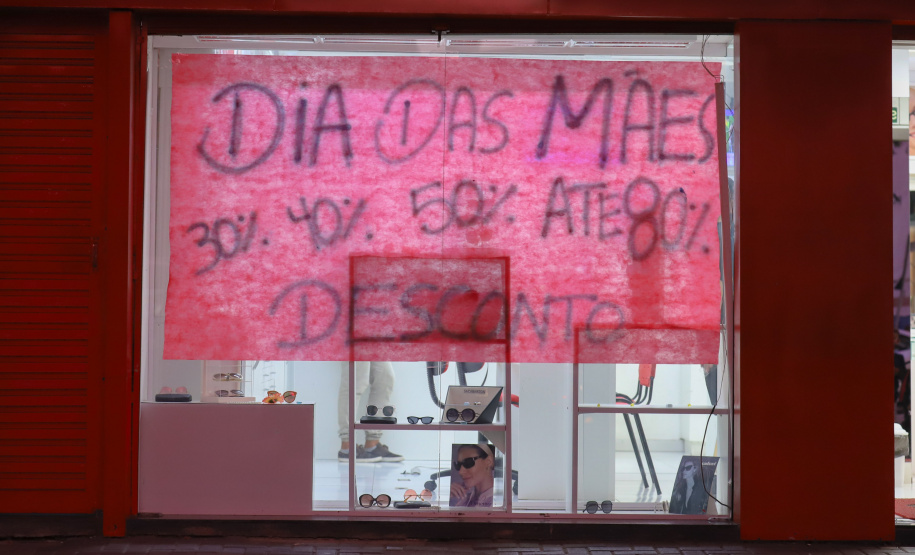 DIA DAS MÃES
30% 40% 50% ATE 80%
DESCONTO